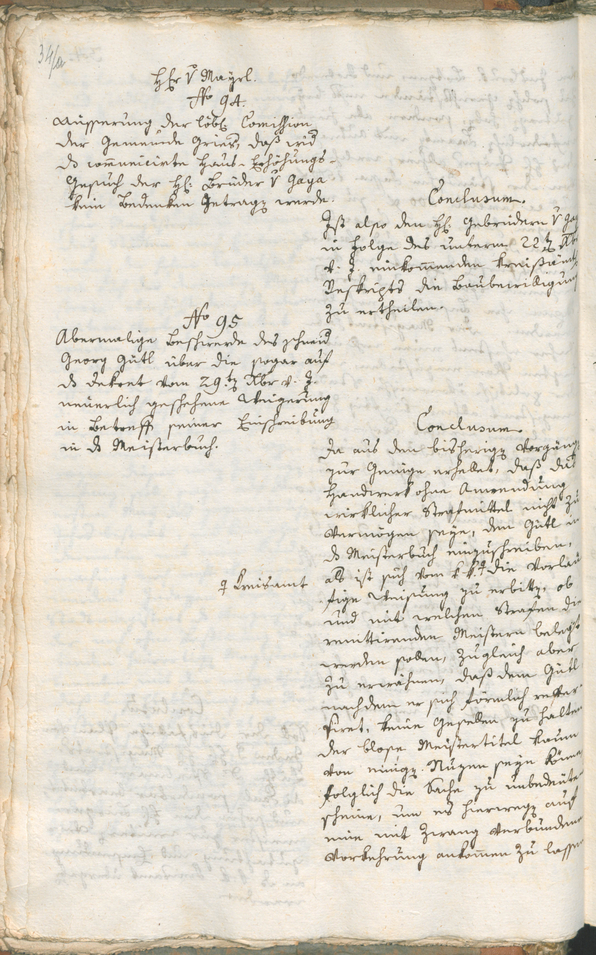 34/a
H: v Mayrl.
No 94.
Äusserung der löbl: Comission
der Gemeinde Gries, daß wid
ds comunicirte Haus-Erhöhungs-
Gesuch der H: Brüder v Gaya
kein Bedenken getrag werde.
Conclusum.
Ist also den H: Gebrüdern v Gay
in Folge des unterm 22t Xbr
v. J. einkommenden kreisämt
Reskripts die Baubewilligung
zu ertheilen.
No 95
Abermalige Beschwerde des schneid
Georg Gütl über die sogar auf
ds Dekret vom 29t Xbr v. J.
neuerlich geschehene Weigerung
in Betreff seiner Einschreibung
in ds Meisterbuch.
Conclusum.
Da aus den bisherig Vorgäng
zur Genüge erhellet, daß das
Handwerk ohne Anwendung
wirklicher Strafmittel nicht zu
vermögen seye, den Gütl in
ds Meisterbuch einzuschreiben,
als ist sich vom k k die vorläu
Kreisamt
fige Weisung zu erbitt, ob
und mit welchen Strafen die
renitirenden Meistern belegt
werden sollen, zugleich aber
zu erwähnen, daß dem Gütl
nachdem er sich förmlich rever
siret, keine Gesellen zu halten
der blose Meistertitel kaum
von einig Nuzen seyn könne
folglich die Sache zu unbedeuten
scheine, um es hierweg auf
eine mit Zwang verbundene
Vorkehrung ankommen zu lassen